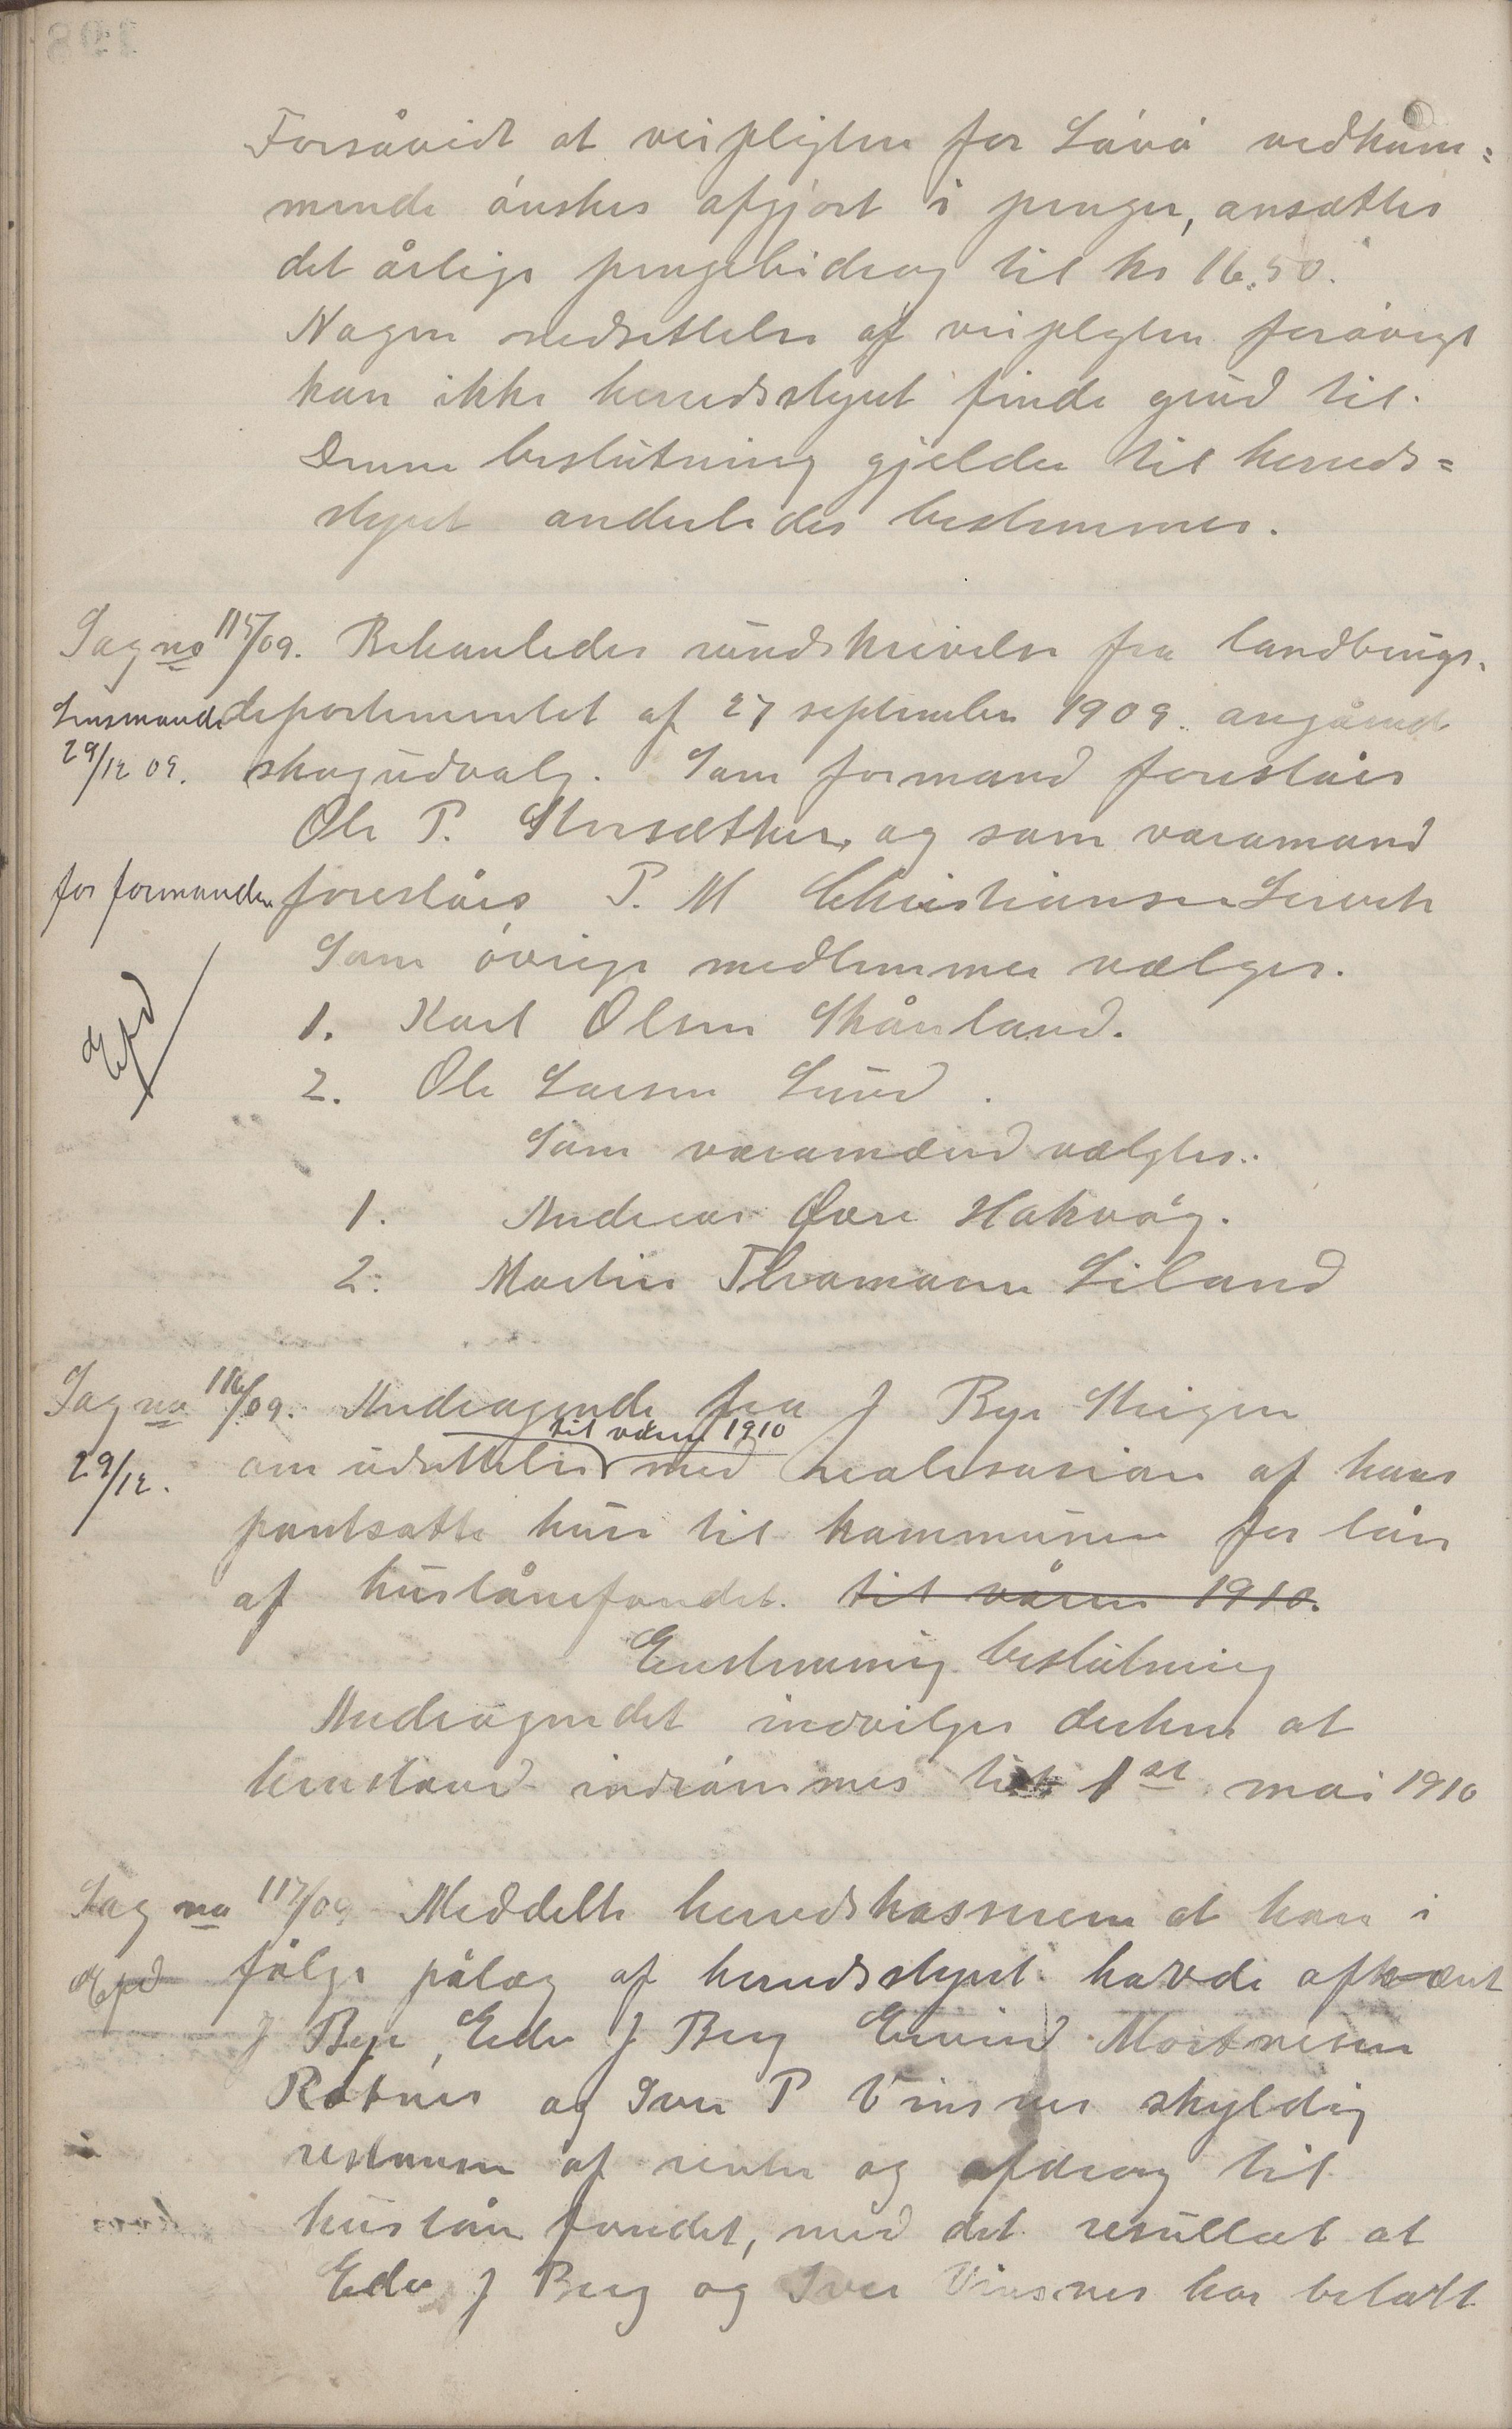 Forsåvidt at veipligten for Låvå vedkom=
mende ónskes afgjórt i penger, ansættes
det årlige pengebidrag til kr 16.50.
Nogen nedsettelse af veipligten foróvrigt
kan ikke herredsstyret finde grund til.
Denne beslutning gjelder til herreds=
styret anderledes bestemmer.
Sag no 115/09. Behanledes rundskrivelse fra landbrugs.
Lensmand departementet af 27 september 1909. angående
29/12 09. skogudvalg. Som formand foreslåes
Ole P. Storsæther, og som varamand
for formanden foreslåes P. M Christiansen Leirvik
Som óvrige medlemmer vælges.
Epd
1. Karl Olsen Skånland.
2. Ole Larsen Lund.
Som varamænd vælgtes:
1. Andreas Øvre Hakvåg.
2. Martin Thomassen Liland
Sag no 116/09. Andragende fra J Bye Steigen
til våren 1910
29/12. om udsettelse med realisasion af hans
pantsatte hus til kommunen for lån
af huslånefondet. til våren 1910.
Enstemmig beslutning
Andragendet indvilges derhen at
henstand indrómmes til 1st mai 1910
Sag no 117/09 Meddelte herredskasseren at han i
Epd fólge pålæg af herredsstyret havde afkrævet
J Bye, Edv J Berg Eivind Mortensen
Rótnes og Iver P Vinsnes skyldig
restanse af renter og afdrag til
huslånfondet, med det resultat at
Edv J Berg og Iver Vinsnes har betalt